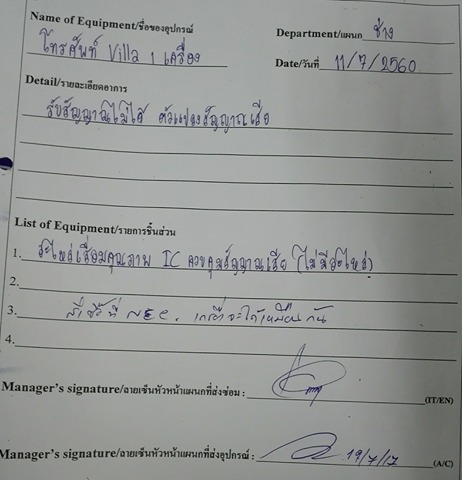 Name of Equipment/ชื่อของอุปกรณ์ Department/แผนก ช่าง
โทรศัพท์ Villa 1 เครื่อง Date/วันที่ 11/7/2560
Detail/รายละเอียดอาการ
รับสัญญาณไม่ได้ ตัวแปลงสัญญาณเสีย
List of Equipment/รายการชิ้นส่วน
1. อะไหล่เสื่อมคุณภาพ IC ควบคุมสัญญาณเสีย (ไม่มีอะไหล่)
2.
3. NEC. กัน
4.
Manager's signature/ลายเซ็นหัวหน้าแผนกที่ส่งซ่อม : (IT/EN)
Manager's signature/ลายเซ็นหัวหน้าแผนกที่ส่งอุปกรณ์ : 19/7/17 (A/C)